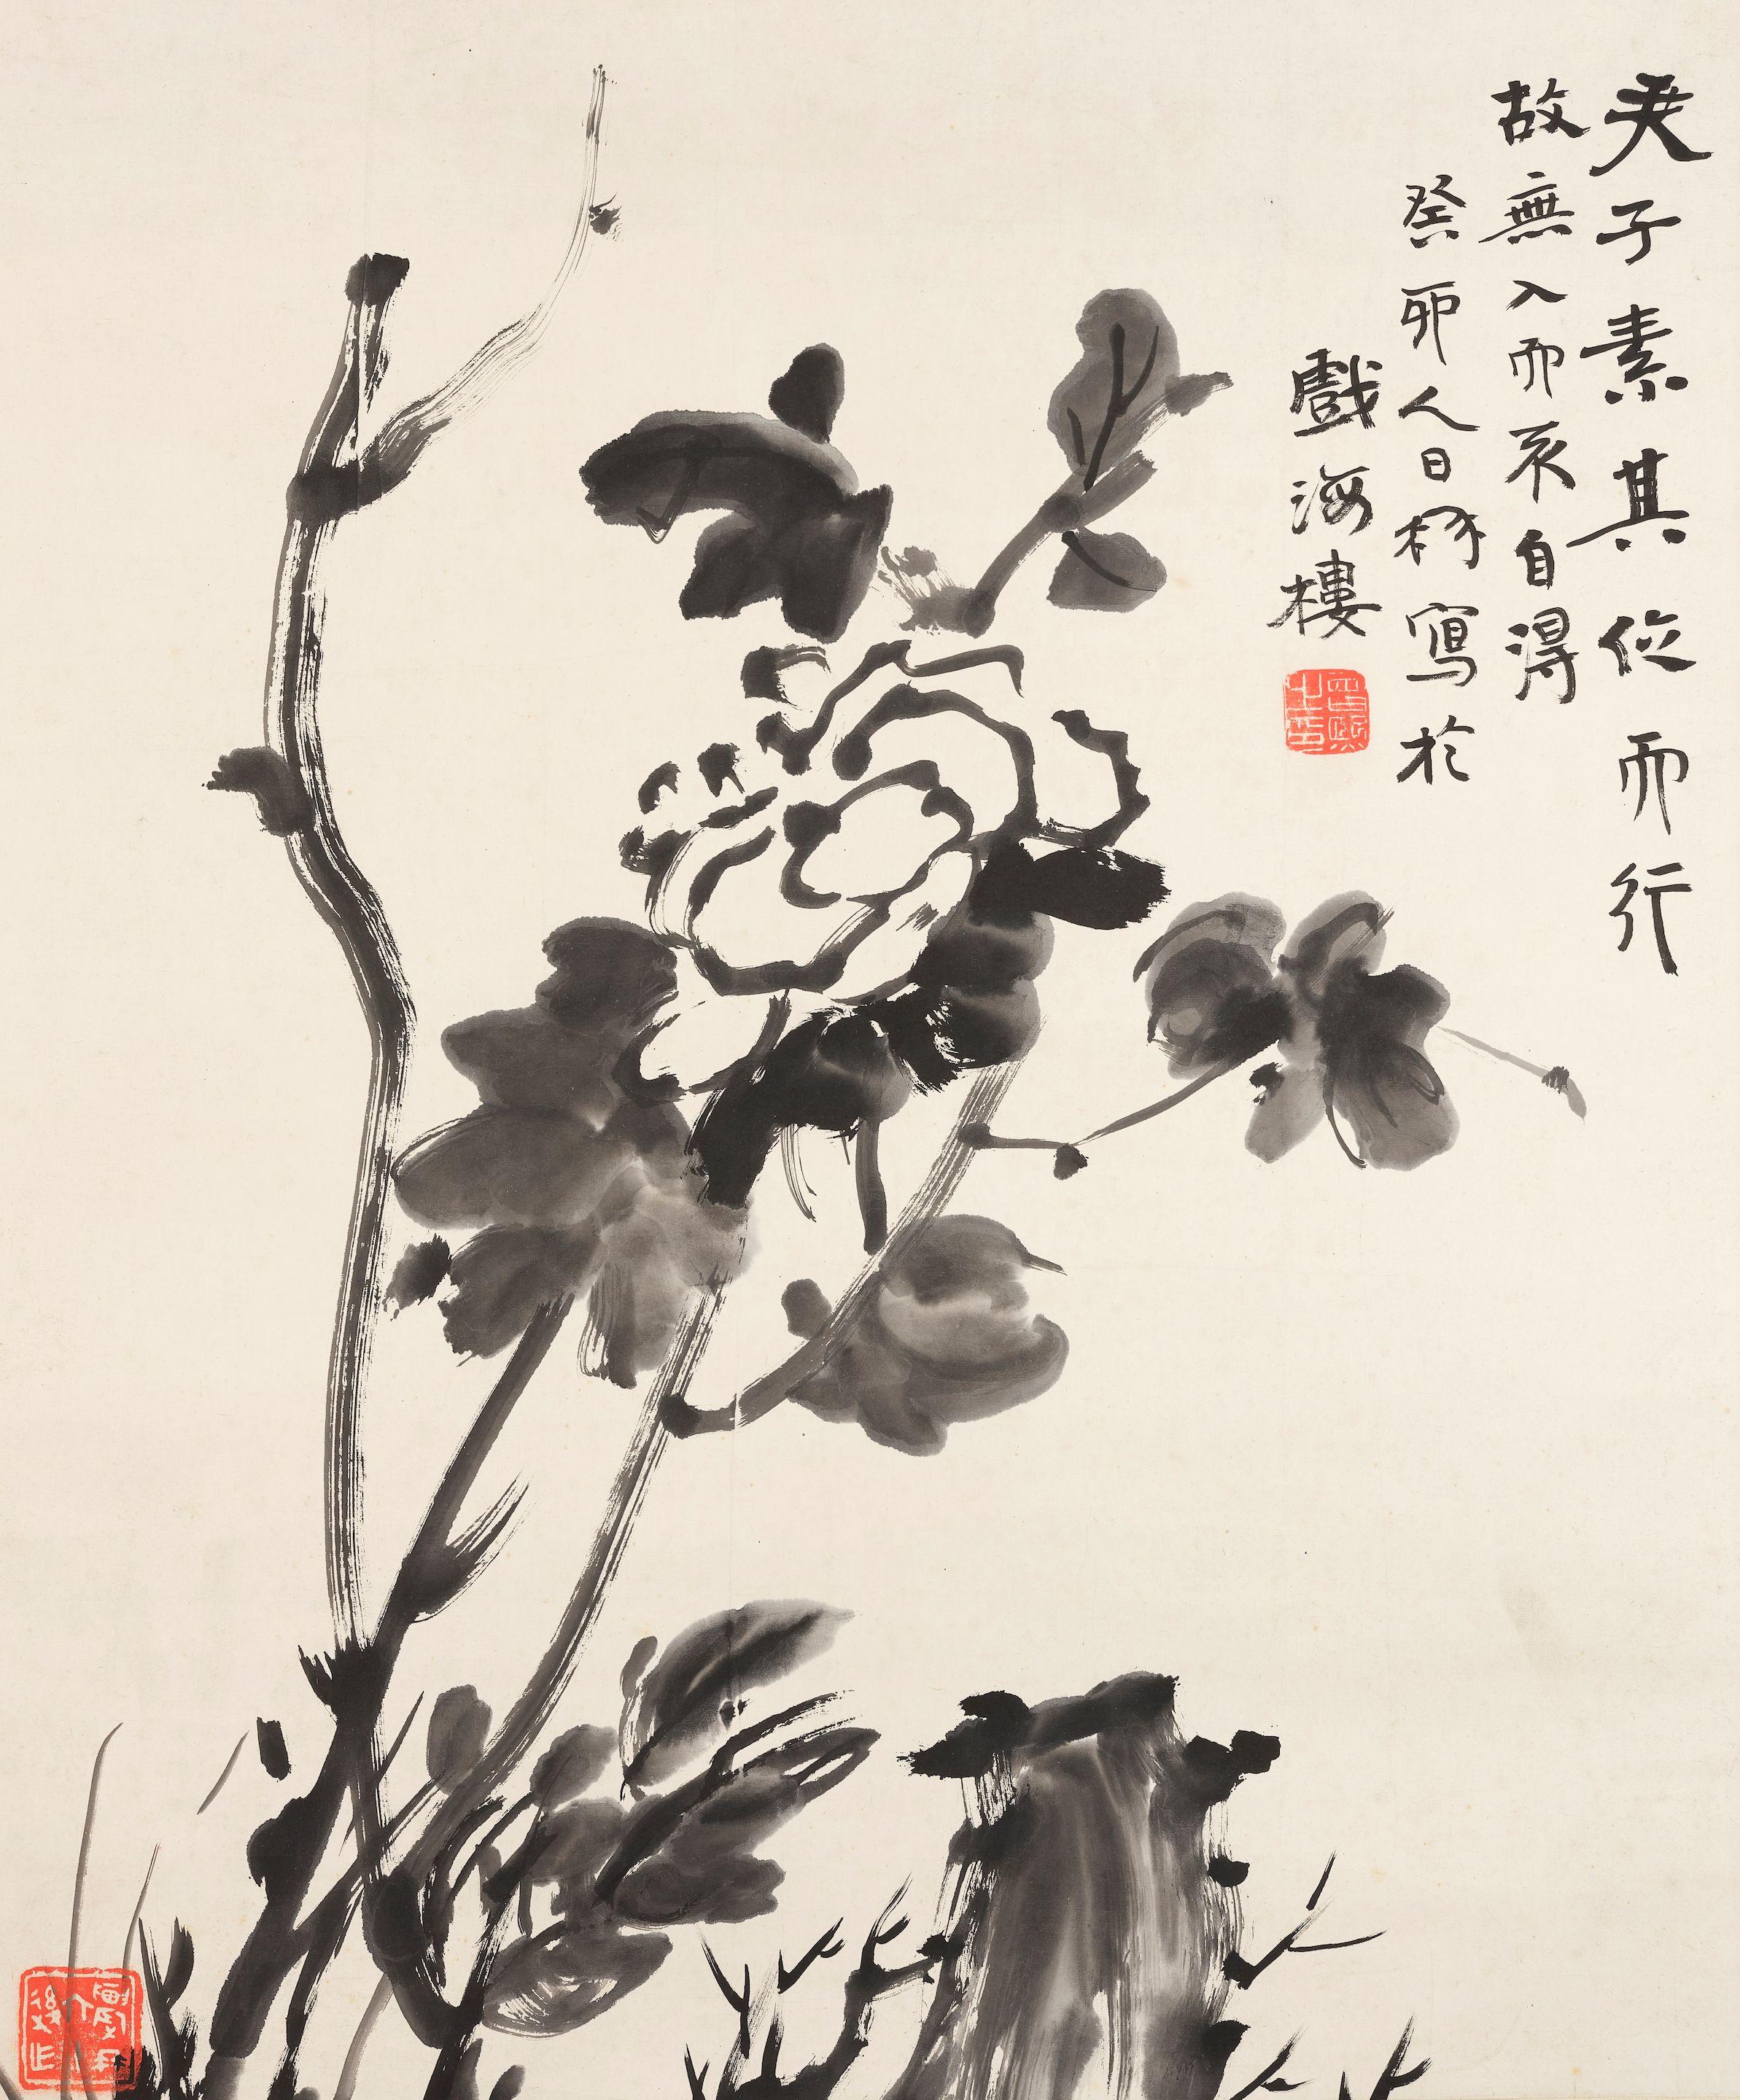 君子素其位而行
故無入而不自得
癸卯人日寫於
戲海樓